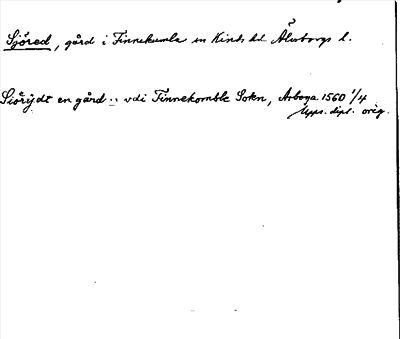 Sjöred, gård i Finnekumla sn Kinds hd Älvsborgs l.
Siörijdt en gård .. vdi Finnekomble Sokn, Arboga 1560 1/4
Upps. dipl. orig.